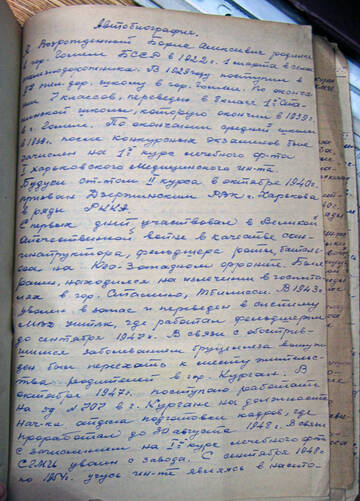 Автобиография.
Я, Возрожденный Борис Алексеевич родился
в гор. Гомеле БССР в 1922 г. 1 марта в семье
железнодорожника. В 1928 году поступил в
жел. дор. школу в гор. Гомеле. По оконча-
нии 7 классов, переведен в
школу, которую окончил в 1939 г.
в г. Гомеле. По окончании средней школы
после конкурсных экзаменов был
зачислен на 1й курс лечебного ф-та
I Харьковского Медицинского ин-та.
Будучи ст-том II курса в октябре 1940 г.
призван Дзержинским РВК г. Харькова
в ряды РККА.
С первых дней участвовал в Великой
Отечественной войне в качестве сан-
инструктора, фельдшера роты, баталь-
она на Юго-Западном фронте. Был
ранен, находился на излечении в госпита-
лях в гор. Сталино, Тбилиси. В 1943 г
уволен в запас и переведен в систему
где работал фельдшером
до сентября 1947 г. В связи с обострив-
шимся заболеванием вынуж-
ден был переехать к месту житель-
ства родителей в гор. Курган. В
октябре 1947 г. поступил работать
на зд. № 707 в г. Кургане на должность
нач-ка отдела подготовки кадров, где
проработал до 30 августа 1948 г. В связи
с зачислением на Iй курс лечебного ф-та
СГМИ уволен с завода. С сентября 1948 г.
по 1954 г. учусь ин-те являясь в настоя-